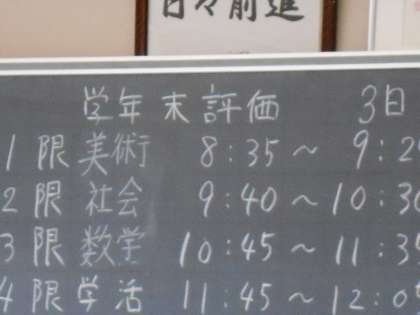 日々前進
学年末評価 3日
1限 美術 8:35～9:2
2限 社会 9:40～10:30
3限 数学 10:45～11:35
4限 学活 11:45～12:0